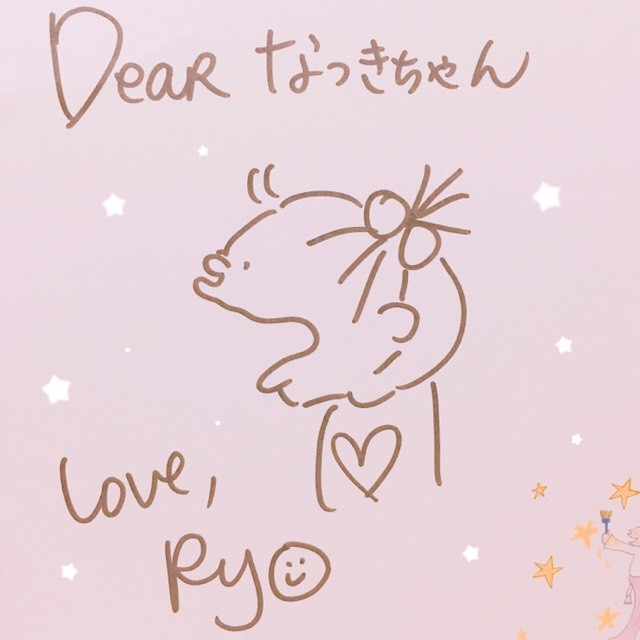 Dear なっきちゃん
Love,
Ryo